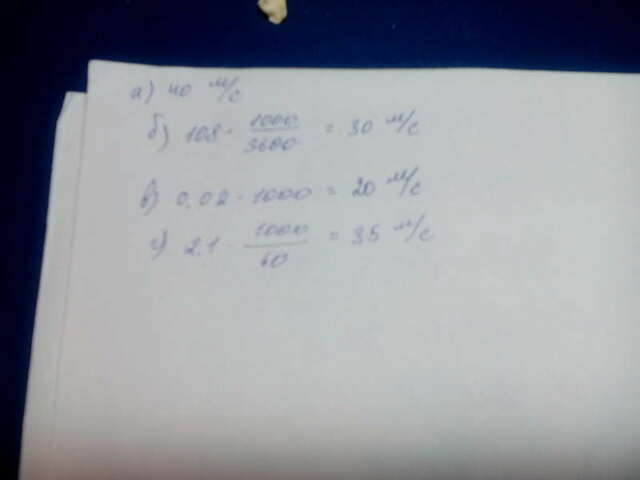 а) 40 м/с
б) 108 · 1000/3600 = 30 м/с
в) 0,02 · 1000 = 20 м/с
г) 2,1 · 1000/60 = 35 м/с